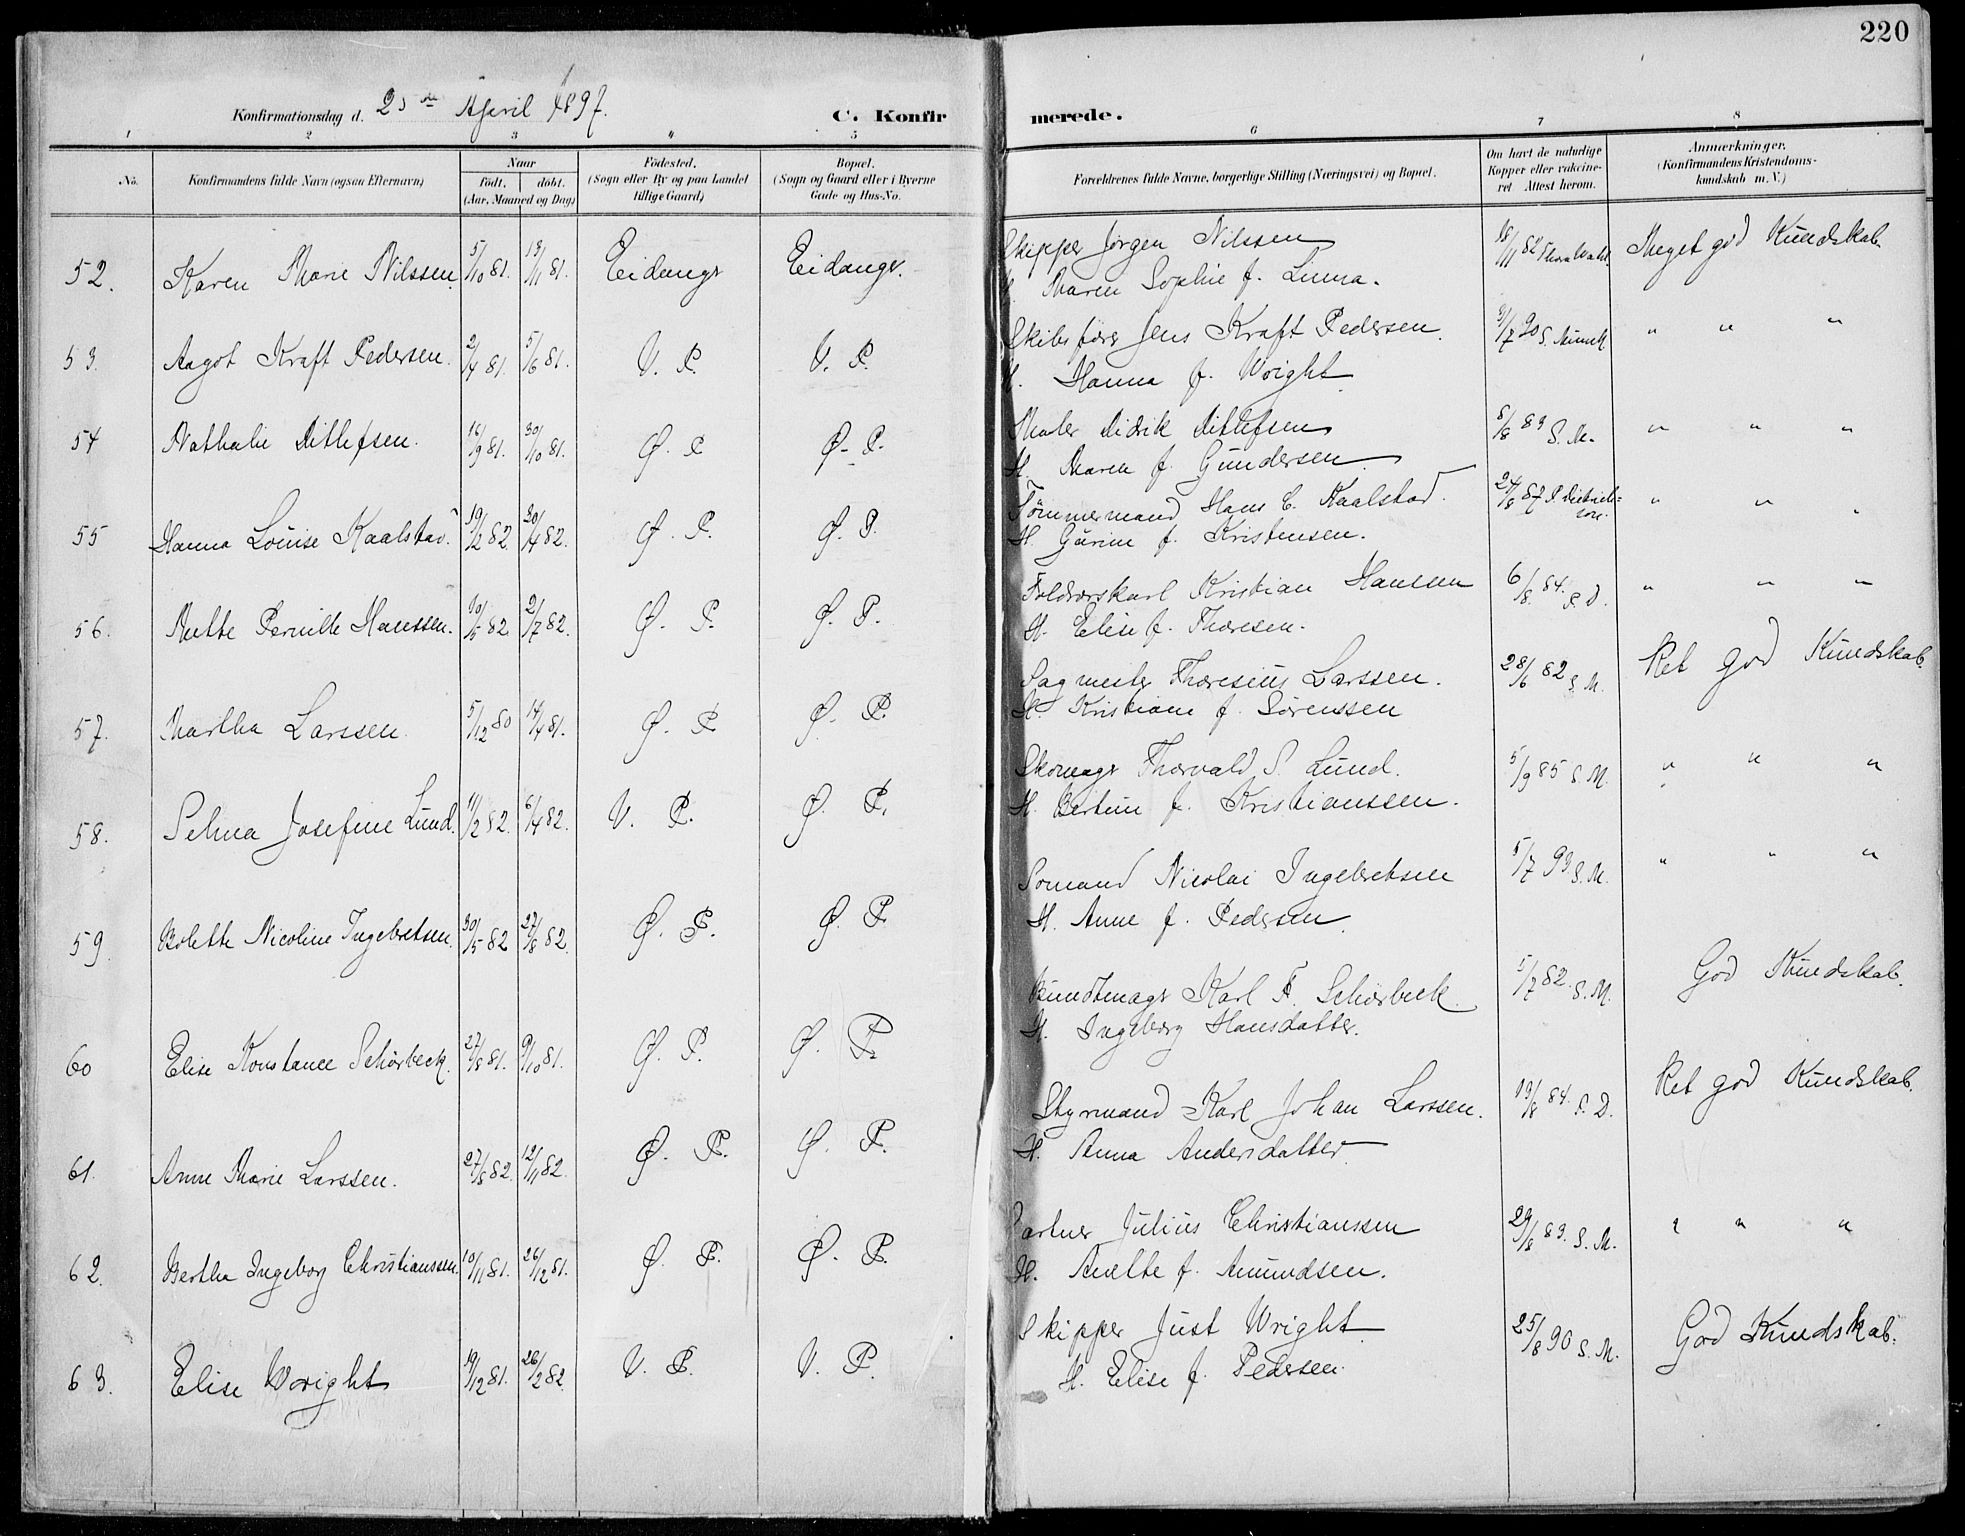 220
Konfirmationsdag d. 25de April 1897. C. Konfirmerede.
1 2 3 4 5 6 7 8
No. Konfirmandens fulde Navn (ogsaa Efternavn) Naar født, døbt. (Aar, Maaned og Dag) Fødested. (Sogn eller By og paa Landet tillige Gaard) Bopæl. (Sogn og Gaard eller i Byerne Gade og Hus-No. Forældrenes fulde Navne, borgerlige Stilling (Næringsvei) og Bopæl. Om havt de naturlige Kopper eller vakcineret Attest herom. Anmærkninger. (Konfirmandens Kristendomskundskab m. V.)
52. Karen Marie Nilssen 5/10 81. 13/11 81. Eidanger Eidanger. Skipper Jørgen Nilssen 18/11 82 Meget god Kundskab
H. Maren Sophie f. Linna.
53. Aagot Kraft Pedersen. 2/4 81. 5/6 81. V. P. V. P. Skibsfører Jens Kraft Pedersen. 9/7 90 S. Munk " " "
H. Hanna f. Wright
54 Nathalie Ditlefsen. 16/9 81. 30/10 81. Ø. P Ø. P. Maler Didrik Ditlefsen 8/8 83 S. M. " " "
H. Maren f. Gundersen
55 Hanna Louise Kaalstad. 19/2 82. 30/4 82. Ø. P. Ø. P. Tømmermand Hans C. Kaalstad. 24/8 87 P Dietrichson. " " "
H. Gurine f. Kristensen.
56. Mette Pernille Hanssen. 10/5 82 2/7 82. Ø. P. Ø. P. Toldvørskarl Kristian Hanssen 6/8. 84. P. D. " " "
H. Elise f. Thoresen.
57. Martha Larssen. 5/12 80 14/4 81. Ø. P Ø. P. Sagmester Thoresius Larssen. 28/6 82 S. M. Ret god Kundskab.
H. Kristiane f. Sørenssen
58. Selma Josefine Lund. 11/2 82. 6/4 82. V. P. Ø. P. Skomager Thorvald S. Lund. 5/9 85 S. M. " " "
H. Bertine f. Kristianssen.
59. Bolette Nicoline Ingebretsen. 30/5 82 27/8 82. Ø. P. Ø. P. Sømand Nicolai Ingebretsen 5/7 93 S. M. " " "
H. Anne f. Pedersen.
60 Elise Konstance Schørbeck. 27/8 81. 9/10 81. Ø. P. Ø. P. Bundtmager Karl F. Schørbeck. 5/7 82. S. M. God Kundskab.
H. Ingeborg Hansdatter.
61. Anne Marie Larssen. 27/8 82. 12/11 82. Ø. P. Ø. P. Styrmand Karl Johan Larssen. 19/8 84. P. D. Ret god Kundskab.
H. Anna Andersdatter
62. Bertha Ingeborg Christianssen. 10/11 81. 26/12 81. Ø. P. Ø. P. Gartner Julius Christianssen 29/8 83. S. M. " " "
H. Anette f. Amundsen.
63. Elise Wright 19/12 81. 26/2 82. V. P. V. P. Skipper Just Wright 25/8 90 S. M. God Kundskab.
H. Elise f. Pedersen.